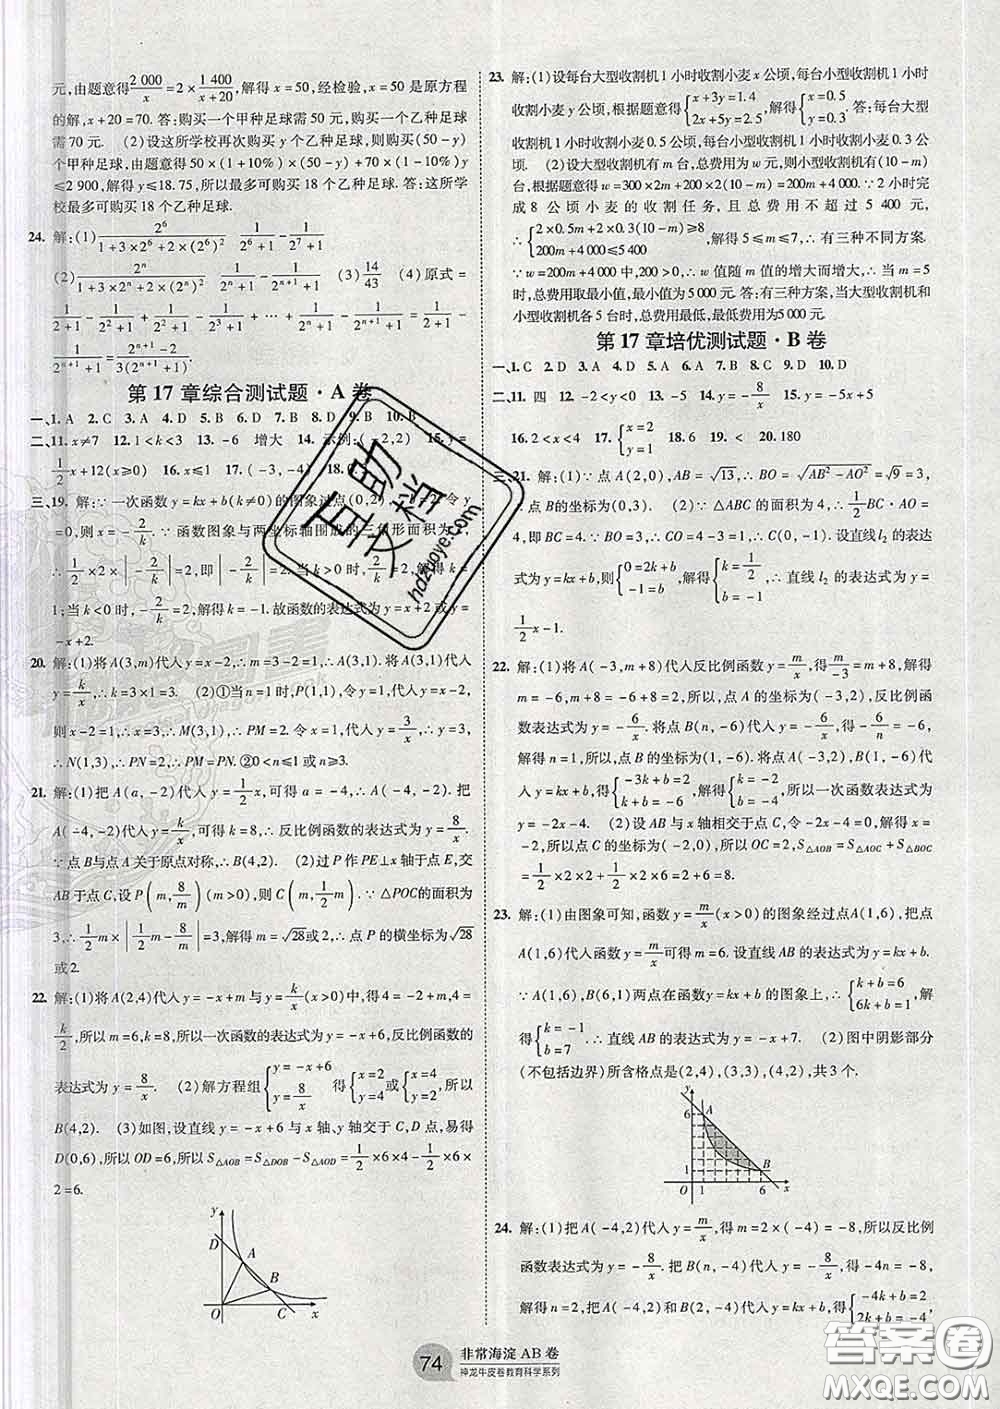 元,由题意得2 000/x=2×1 400/(x+20),解得x=50,经检验,x=50是原方程
的解,x+20=70.答:购买一个甲种足球需50元,购买一个乙种足球
需70元. (2)设这所学校再次购买y个乙种足球,则购买(50-y)个
甲种足球,由题意得50×(1+10%)×(50-y)+70×(1-10%)y
≤2 900,解得y≤18.75,所以最多可购买18个乙种足球.答:这所学
校最多可购买18个乙种足球.
24. 解:(1)2^6/(1+3×2^6+2×(2^6)^2) 1/(2^6+1)-1/(2^7+1)
(2)2^n/(1+3×2^n+2×(2^n)^2) 1/(2^n+1)-1/(2^(n+1)+1) (3)14/43 (4)原式=
1/(2+1)-1/(2^2+1)+1/(2^2+1)-1/(2^3+1)+…+1/(2^n+1)-1/(2^(n+1)+1)=1/(2+1)-
1/(2^(n+1)+1)=(2^(n+1)-2)/(3(2^(n+1)+1)).
第17章综合测试题·A卷
一、1. A 2. C 3. A 4. D 5. D 6. B 7. B 8. D 9. B 10. B
二、11. x≠7 12. 1<k<3 13. -6 增大 14. 示例:(-2,2) 15. y=
1/2x+12(x≥0) 16. x≤1 17. (-3,-4) 18.
三、19. 解:∵一次函数y=kx+b(k≠0)的图象过点(0,2),
=0,则x=-2/k.∵函数图象与两坐标轴围成的三角形面积为2,
∴1/2×2×|-2/k|=2,即|-2/k|=2.当k>0时,2/k=2,解得k=
1;当k<0时,-2/k=2,解得k=-1.故函数的表达式为y=x+2或y=
-x+2.
20. 解:(1)将A(3,m)代入y=x-2,∴m=3-2=1,∴A(3,1).将A(3,1)代入
y=k/x,∴k=3×1=3. (2)①当n=1时,P(1,1),令y=1,代入y=x-2,
则x-2=1,∴x=3,∴M(3,1),∴PM=2.令x=1,代入y=3/x,∴y=3,
∴N(1,3),∴PN=2,∴PM=PN. ②0<n≤1或n≥3.
21. 解:(1)把A(a,-2)代入y=1/2x,可得a=-4,∴A(-4,-2).把
A(-4,-2)代入y=k/x,可得k=8,∴反比例函数的表达式为y=8/x.
∵点B与点A关于原点对称,∴B(4,2). (2)过P作PE⊥x轴于点E,交
AB于点C,设P(m,8/m)(m>0),则C(m,1/2m).∵△POC的面积为
3,∴1/2m×|1/2m-8/m|=3,解得m=√28或2,∴点P的横坐标为√28
或2.
22. 解:(1)将A(2,4)代入y=-x+m与y=k/x(x>0)中,得4=-2+m,4=
k/2,所以m=6,k=8,所以一次函数的表达式为y=-x+6,反比例函数的
表达式为y=8/x. (2)解方程组{y=-x+6 y=8/x 得{x=2 y=4 或{x=4 y=2,所以
B(4,2). (3)如图,设直线y=-x+6与x轴、y轴交于C,D点,易得
D(0,6),所以OD=6,所以S△AOB=S△DOB-S△AOD=1/2×6×4-1/2×6×
2=6.
y D A B O C x
23. 解:(1)设每台大型收割机1小时收割小麦x公顷,每台小型收割机1小
时收割小麦y公顷,根据题意得{x+3y=1.4 2x+5y=2.5,解得{x=0.5 y=0.3.答:每台大型
收割机1小时收割小麦0.5公顷,每台小型收割机1小时收割小麦0.3公
顷. (2)设大型收割机有m台,总费用为w元,则小型收割机有(10-m)
台,根据题意得w=300×2m+200×2(10-m)=200m+4 000.∵2小时完
成8公顷小麦的收割任务,且总费用不超过5 400元,
∴{2×0.5m+2×0.3(10-m)≥8 200m+4 000≤5 400,解得5≤m≤7,∴有三种不同方案.
∵w=200m+4 000中,200>0,∴w值随m值的增大而增大,∴当m=5
时,总费用取最小值,最小值为5 000元.答:有三种方案,当大型收割机和
小型收割机各5台时,总费用最低,最低费用为5 000元.
第17章培优测试题·B卷
一、1. C 2. D 3. A 4. D 5. C 6. C 7. D 8. C 9. D 10. D
二、11. 四 12. -2<y<0 13. m<4 14. y=-8/x 15. y=-5x+5
16. 2<x<4 17. {x=2 y=1 18. 6 19. < 20. 180
三、21. 解:(1)∵点A(2,0),AB=√13,∴BO=√(AB²-AO²)=√9=3,
∴点B的坐标为(0,3). (2)∵△ABC的面积为4,∴1/2BC·AO=
4,即BC=4.∵BO=3,∴CO=4-3=1,∴C(0,-1).设直线l2的表达
式为y=kx+b,则{0=2k+b -1=b,解得{k=1/2 b=-1,∴直线l2的表达式为y=
1/2x-1.
22. 解:(1)将A(-3,m+8)代入反比例函数y=m/x,得m/-3=m+8,解得
m=-6,m+8=-6+8=2,所以,点A的坐标为(-3,2),反比例函
数表达式为y=-6/x.将点B(n,-6)代入y=-6/x,得-6/n=-6,
解得n=1,所以,点B的坐标为(1,-6).将点A(-3,2),B(1,-6)代
入y=kx+b,得{-3k+b=2 k+b=-6,解得{k=-2 b=-4,所以一次函数表达式为y=
-2x-4. (2)设AB与x轴相交于点C,令-2x-4=0,解得x=-2,
所以点C的坐标为(-2,0),所以OC=2,S△AOB=S△AOC+S△BOC=
1/2×2×2+1/2×2×6=2+6=8.
23. 解:(1)由图象可知,函数y=m/x(x>0)的图象经过点A(1,6),把点
A(1,6)代入函数y=m/x可得m=6.设直线AB的表达式为y=kx+b.
∵A(1,6),B(6,1)两点在函数y=kx+b的图象上,∴{k+b=6 6k+b=1,解
得{k=-1 b=7.∴直线AB的表达式为y=-x+7. (2)图中阴影部分
(不包括边界)所含格点是(2,4),(3,3),(4,2),共3个.
y 6 A 1 B O 1 6 x
24. 解:(1)把A(-4,2)代入y=m/x,得m=2×(-4)=-8,所以反比例
函数表达式为y=-8/x.把B(n,-4)代入y=-8/x,得-4n=-8,
解得n=2,把A(-4,2)和B(2,-4)代入y=kx+b,得{-4k+b=2 2k+b=-4,
74 非常海淀AB卷
神龙牛皮卷教育科学系列
互助文档
hdzuoye.com
答案圈
MXQE.COM